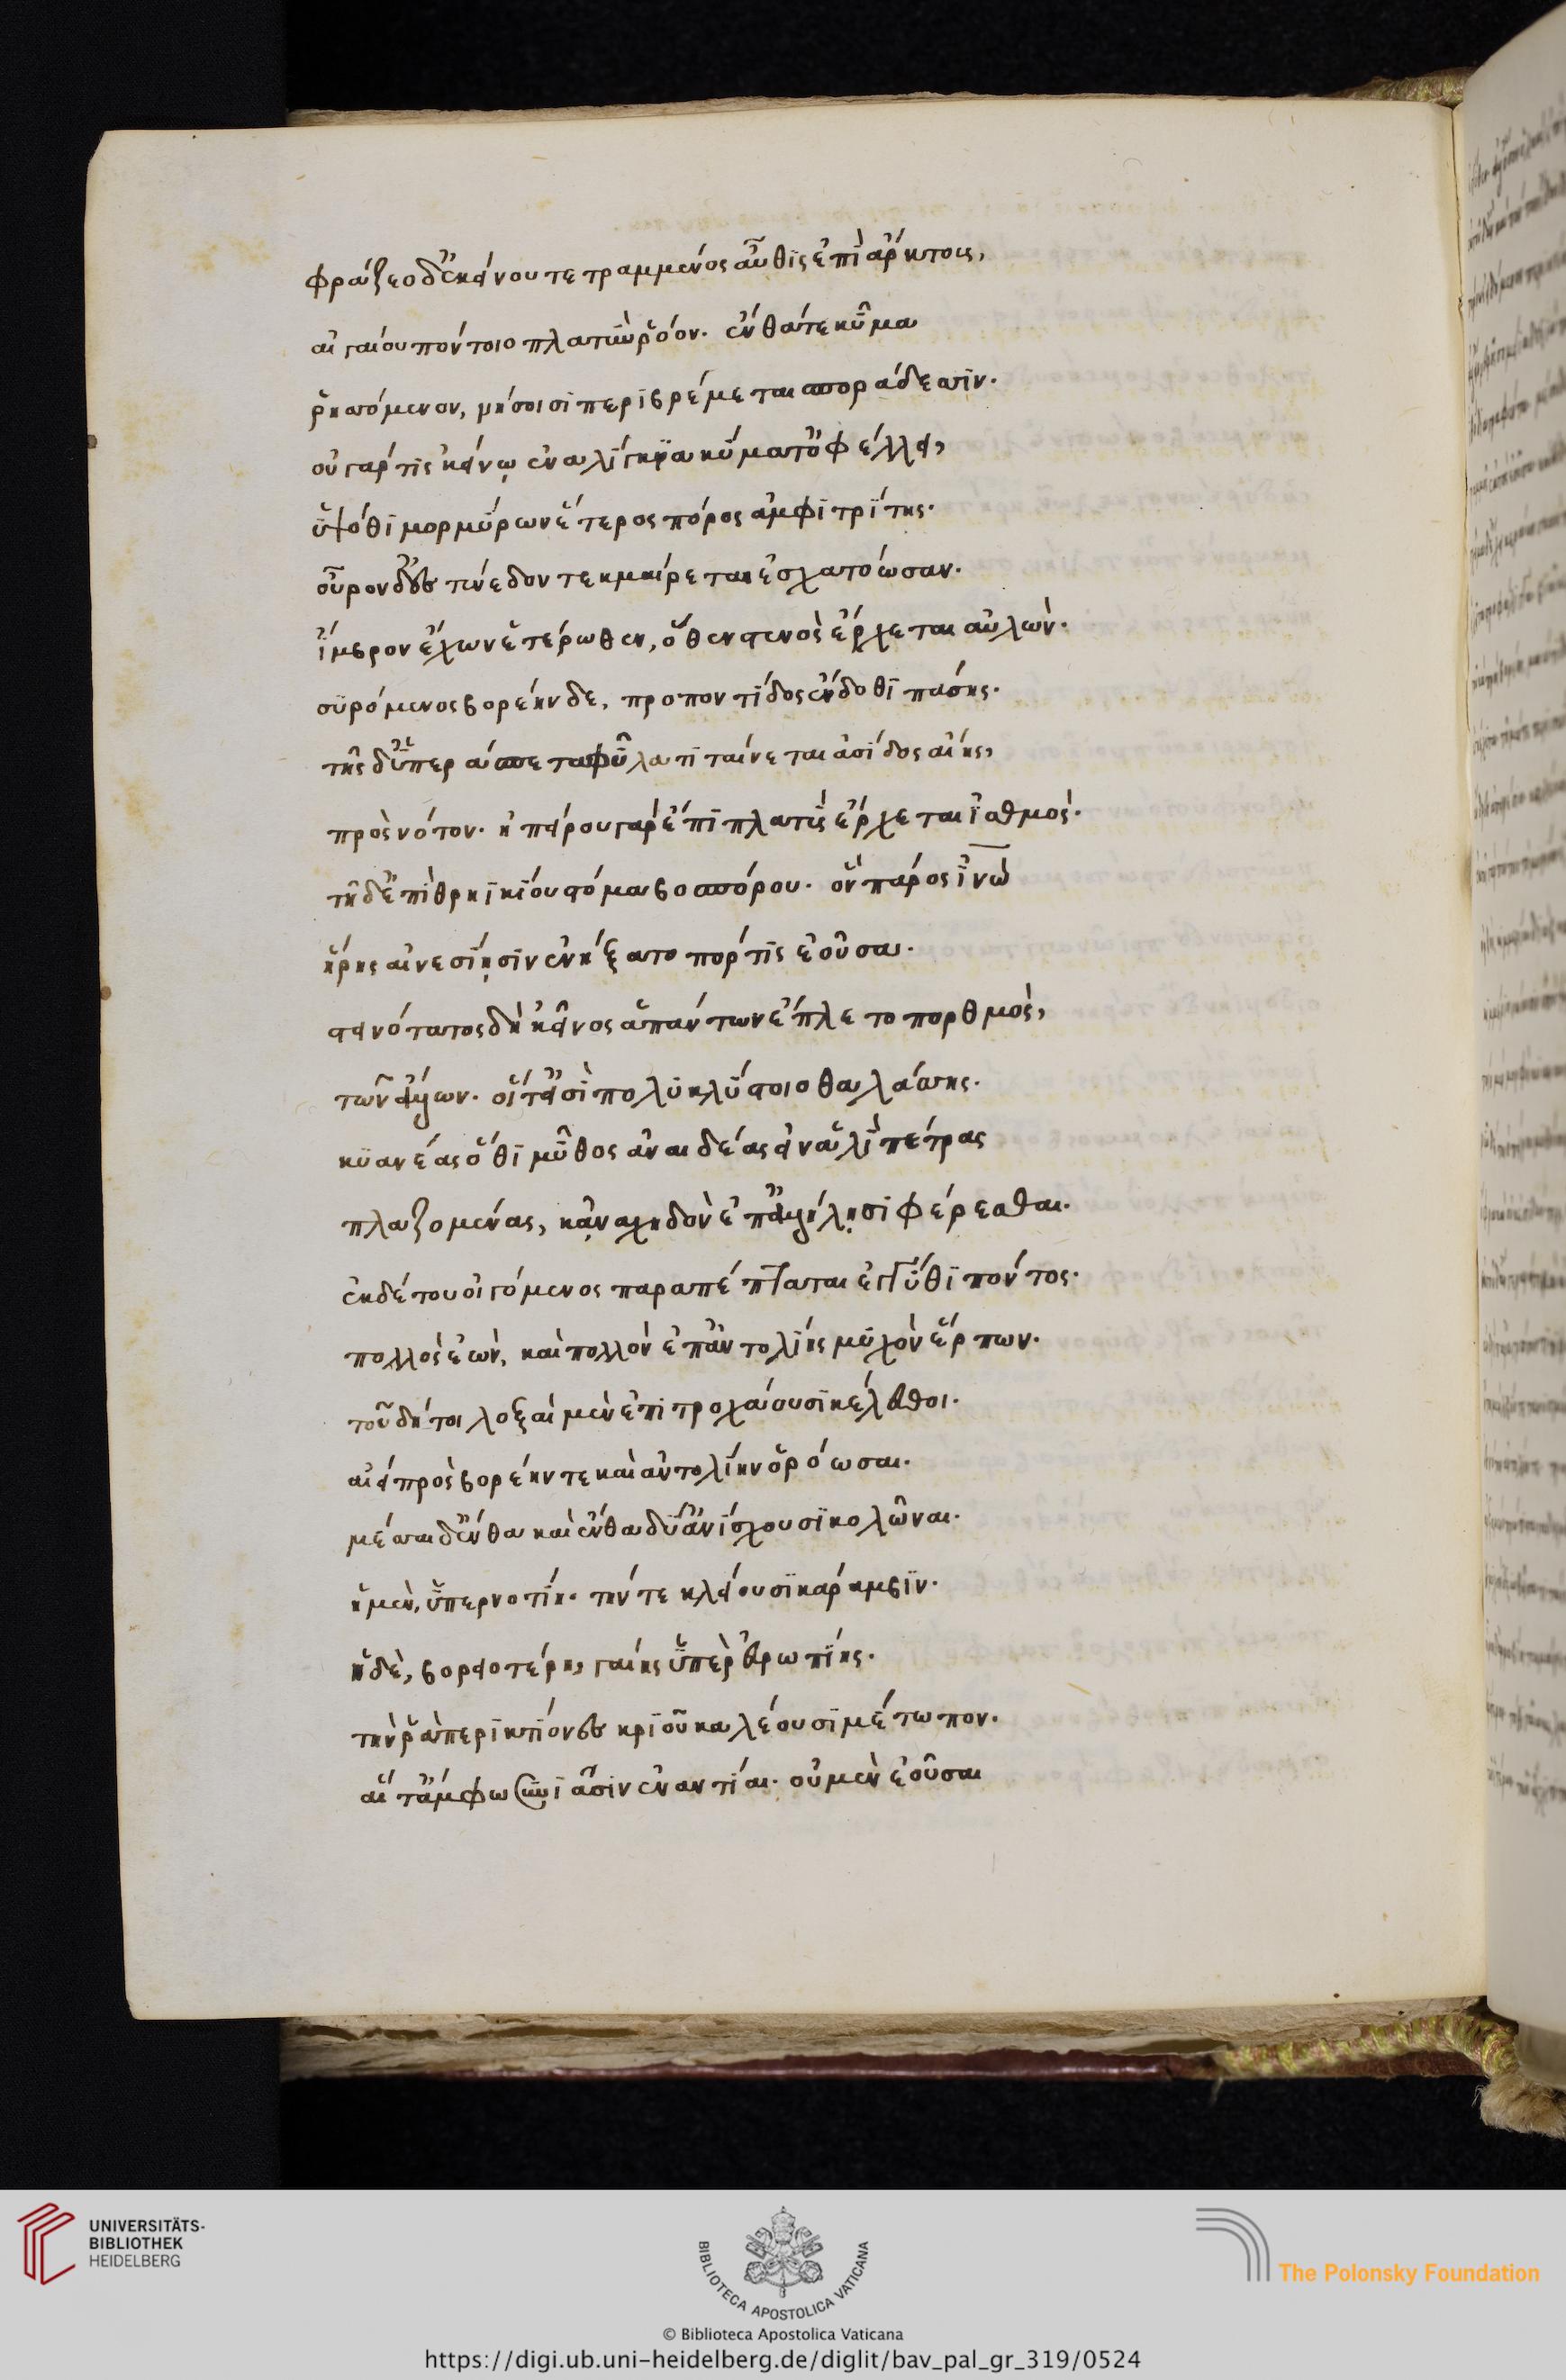 φράζεο δ' ἐκείνου τετραμμένος αὖθις ἐπὶ ἄρκτοις,
αἰγαίου πόντοιο πλατὺν ῥόον. ἔνθά τε κῦμα
ῥησσόμενον, νήσοισι περιβρέμεται σποράδεσσιν.
οὐ γάρ τις κείνῳ ἐναλίγκια κύματ' ὀφέλλει,
ὑψόθι μορμύρων ἕτερος πόρος ἀμφιτρίτης.
οὖρον δ' ἐς τένεδον τεκμαίρεται ἐσχατόωσαν.
ἴμβρον ἔχων ἑτέρωθεν, ὅθεν στενὸς ἔρχεται αὐλὼν.
συρόμενος βορέηνδε, προποντίδος ἔνδοθι πάσης.
τῆς δ' ὕπερ ἄσπετα φῦλα τιταίνεται ἀσίδος αἴης,
πρὸς νότον. ἠπείρου γὰρ ἔπι πλατὺς ἔρχεται ἰσθμὸς.
τῆ δ' ἐπὶ θρηϊκίου στόμα βοσπόρου. ὃν πάρος ἰνὼ
ἥρης αἰνεσίῃσιν ἐνήξατο πόρτις ἐοῦσα.
στεινότατος δὴ κεῖνος ἁπάντων ἔπλετο πορθμὸς,
τῶν ἄλλων. οἵ τ' εἰσὶ πολυκλύστοιο θαλάσσης.
κυανέας ὅθι μῦθος ἀναιδέας εἰν ἁλὶ πέτρας
πλαζομένας, καναχηδὸν ἐπ' ἀλλήλῃσι φέρεσθαι.
ἐκ δέ του οἰγόμενος παραπέπταται ἐγγύθι πόντος.
πολλὸς ἐὼν, καὶ πολλὸν ἐπ' ἀντολίης μυχὸν ἕρπων.
τοῦ δή τοι λοξαὶ μὲν ἐπιτροχάουσι κέλευθοι.
αἰεὶ πρὸς βορέην τε καὶ ἀντολίην ὁρόωσαι.
μέσσαι δ' ἔνθα καὶ ἔνθα δύ' ἀνίσχουσι κολῶναι.
ἡ μὲν, ὑπερνοτίη. τήν τε κλείουσι κάραμβιν.
ἡ δὲ, βορειοτέρη, γαίης ὕπερ εὐρωπίης.
τὴν ῥὰ περικτίονες κριοῦ καλέουσι μέτωπον.
αἵ τ' ἄμφω ξυνίασιν ἐναντίαι. οὐ μὲν ἐοῦσαι
UNIVERSITÄTS-
BIBLIOTHEK
HEIDELBERG
BIBLIOTECA APOSTOLICA VATICANA
The Polonsky Foundation
© Biblioteca Apostolica Vaticana
https://digi.ub.uni-heidelberg.de/diglit/bav_pal_gr_319/0524